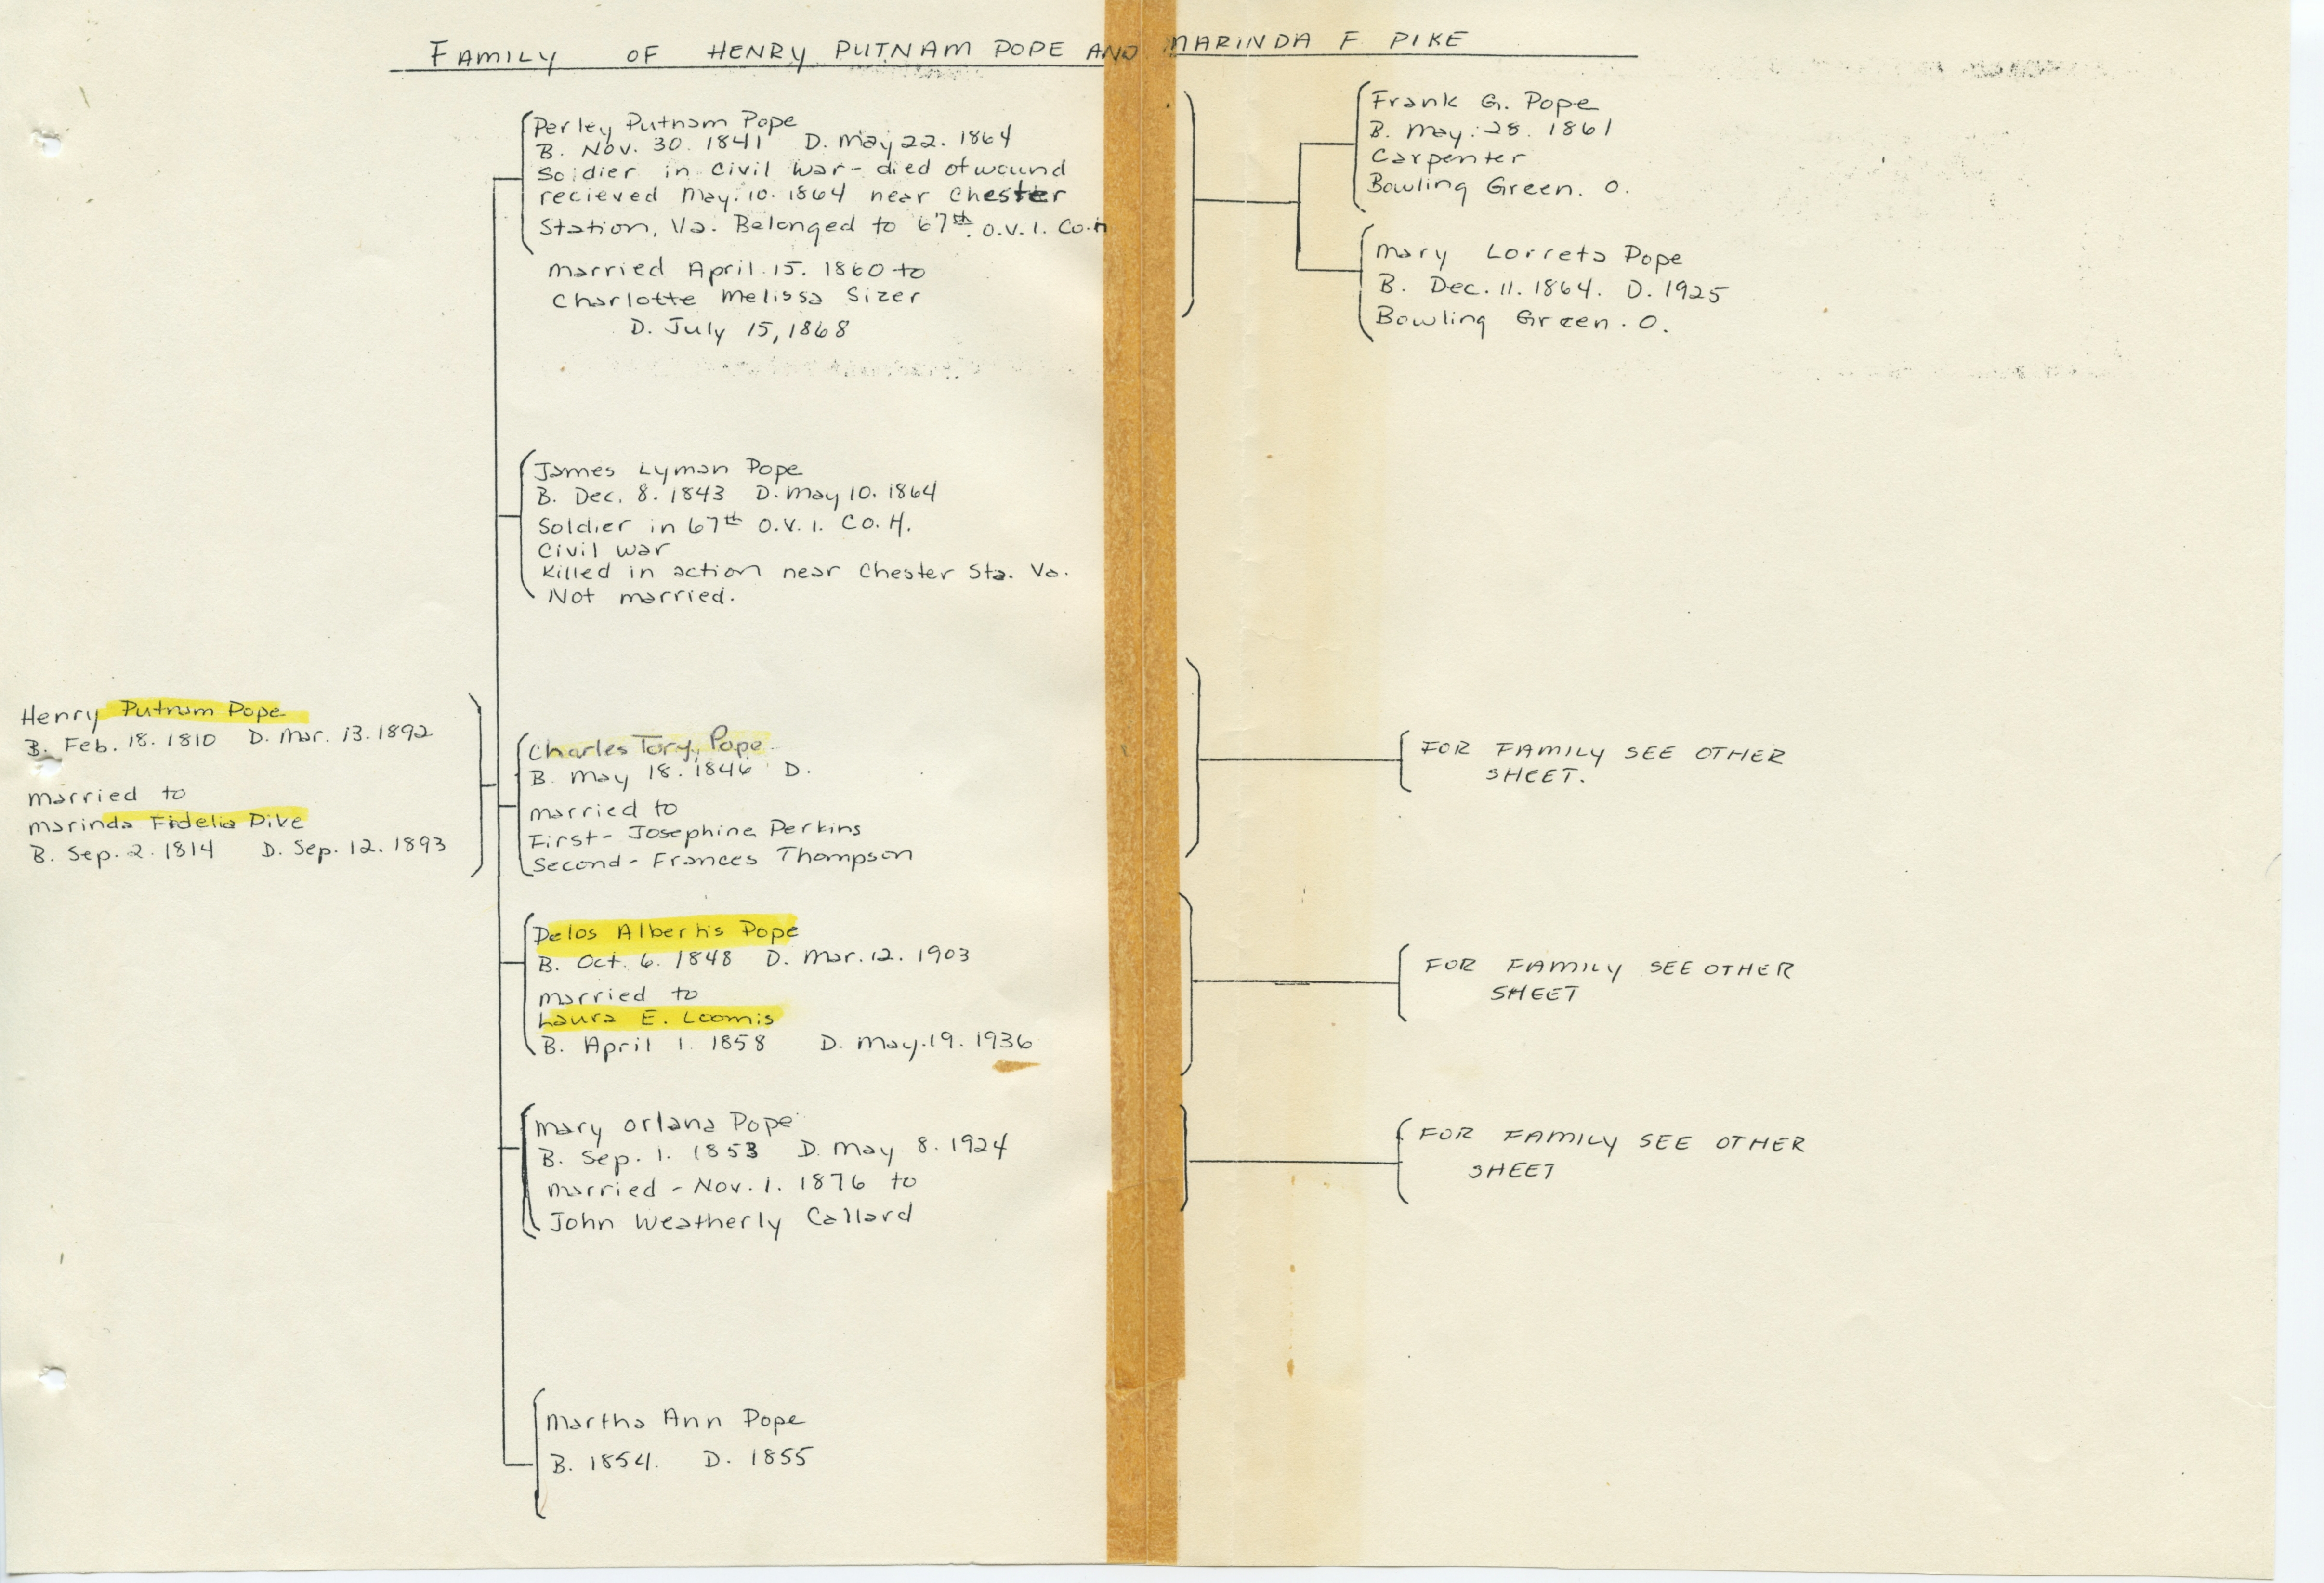 FAMILY OF HENRY PUTNAM POPE AND MARINDA F. PIKE
Henry Putnam Pope
B. Feb. 18. 1810 D. Mar. 13. 1892
married to
Marinda Fidelia Pike
B. Sep. 2. 1814 D. Sep. 12. 1893
Perley Putnam Pope
B. Nov. 30. 1841 D. May 22. 1864
Soldier in Civil War - died of wound
recieved May. 10. 1864 near Chester
Station, Va. Belonged to 67th O.V.I. Co. H
married April. 15. 1860 to
Charlotte Melissa Sizer
D. July 15, 1868
James Lyman Pope
B. Dec. 8. 1843 D. May 10. 1864
Soldier in 67th O.V.I. Co. H.
Civil War
Killed in action near Chester Sta. Va.
Not married.
Charles Tory Pope
B. May 18. 1846 D.
married to
First - Josephine Perkins
Second - Frances Thompson
Delos Albertis Pope
B. Oct. 6. 1848 D. Mar. 12. 1903
married to
Laura E. Loomis
B. April 1. 1858 D. May. 19. 1936
Mary Orlana Pope
B. Sep. 1. 1853 D. May 8. 1924
married - Nov. 1. 1876 to
John Weatherly Callard
Martha Ann Pope
B. 1854. D. 1855
Frank G. Pope
B. May. 28. 1861
Carpenter
Bowling Green. O.
Mary Lorreta Pope
B. Dec. 11. 1864. D. 1925
Bowling Green. O.
FOR FAMILY SEE OTHER
SHEET.
FOR FAMILY SEE OTHER
SHEET
FOR FAMILY SEE OTHER
SHEET